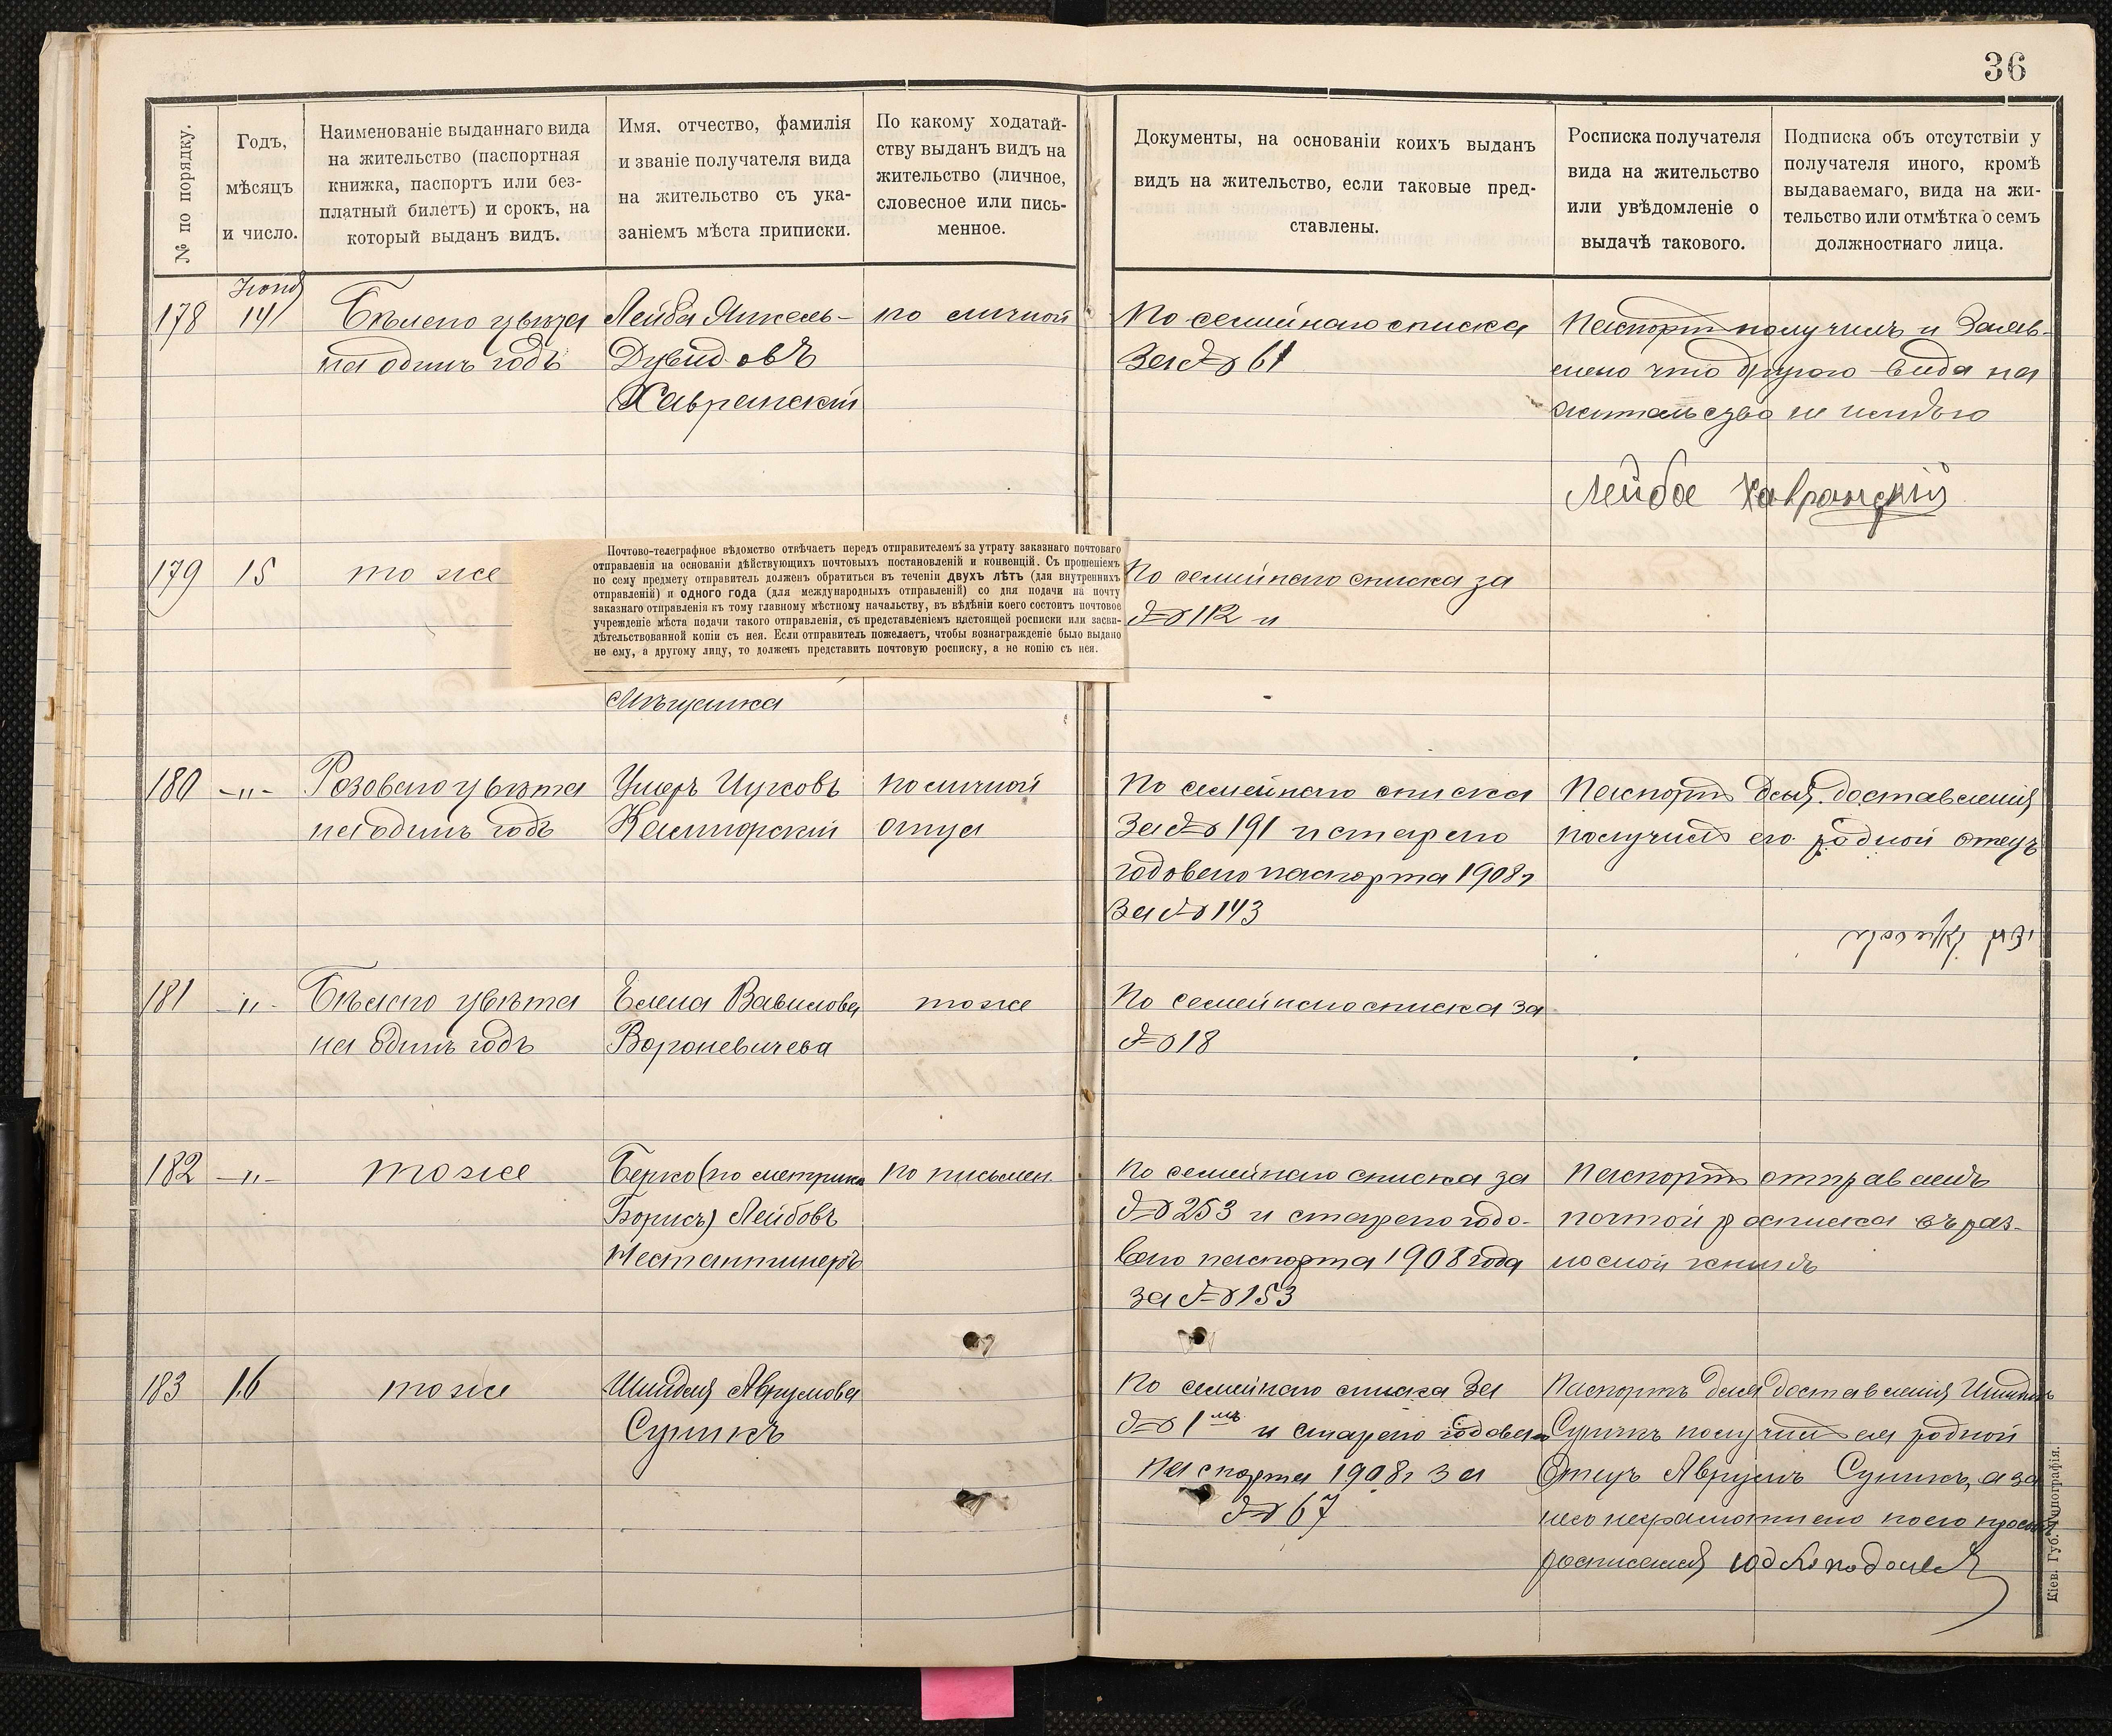 36
№ по порядку.
Годъ,
мѣсяцъ
и число.
Наименованіе выданнаго вида
на жительство (паспортная
книжка, паспортъ или без-
платный билетъ) и срокъ, на
который выданъ видъ.
Имя, отчество, фамилія
и званіе получателя вида
на жительство съ ука-
заніемъ мѣста приписки.
По какому ходатай-
ству выданъ видъ на
жительство (личное,
словесное или пись-
менное.
Документы, на основаніи коихъ выданъ
видъ на жительство, если таковые пред-
ставлены.
Росписка получателя
вида на жительство
или увѣдомленіе о
выдачѣ такового.
Подписка объ отсутствіи у
получателя иного, кромѣ
выдаваемаго, вида на жи-
тельство или отмѣтка о семъ
должностнаго лица.
178
14
Бѣлаго цвѣта
на одинъ годъ
Лейба Янкель-
Дувидовъ
Хавранскій
по личной
По семейнаго списка
За № 61
Паспортъ получилъ и Заяв-
лено что другого вида на
жительство не имѣю
Лейба Хавранскій
179
15
тоже
Почтово-телеграфное вѣдомство отвѣчаетъ передъ отправителемъ за утрату заказнаго почтоваго
отправленія на основаніи дѣйствующихъ почтовыхъ постановленій и конвенцій. Съ прошеніемъ
по сему предмету отправитель долженъ обратиться въ теченіи двухъ лѣтъ (для внутреннихъ
отправленій) и одного года (для международныхъ отправленій) со дня подачи на почту
заказнаго отправленія къ тому главному мѣстному начальству, въ вѣдѣніи коего состоитъ почтовое
учрежденіе мѣста подачи такого отправленія, съ представленіемъ настоящей росписки или засви-
дѣтельствованной копіи съ нея. Если отправитель пожелаетъ, чтобы вознагражденіе было выдано
не ему, а другому лицу, то долженъ представить почтовую росписку, а не копію съ нея.
По семейнаго списка за
№ 112 и
180
-"-
Розоваго цвѣта
на одинъ годъ
Ицковъ
Касторскій
по личной
отца
По семейнаго списка
За № 191 и стараго
годоваго паспорта 1908 г
За № 143
Паспортъ Для доставленія
получилъ его родной отецъ
181
-"-
Бѣлаго цвѣта
на одинъ годъ
Елена Вавилова
Вороневичева
тоже
По семейнаго списка за
№ 18
182
-"-
тоже
Берко (по метрика
Борисъ) Лейбовъ
по письмен.
По семейнаго списка за
№ 253 и стараго годо-
ваго паспорта 1908 года
за № 153
Паспортъ отправленъ
почтой росписка въ раз-
носной книгѣ
183
16
тоже
Шиндля Аврумова
Супикъ
По семейнаго списка За
№ 1 мъ и стараго годоваго
паспорта 1908 г За
№ 67
Паспортъ для доставленія
Супикъ получилъ ея родной
Отецъ Аврумъ Супикъ, а за
него неграмотнаго по его просьбѣ
росписался
Кіев. Губ. Типографія.